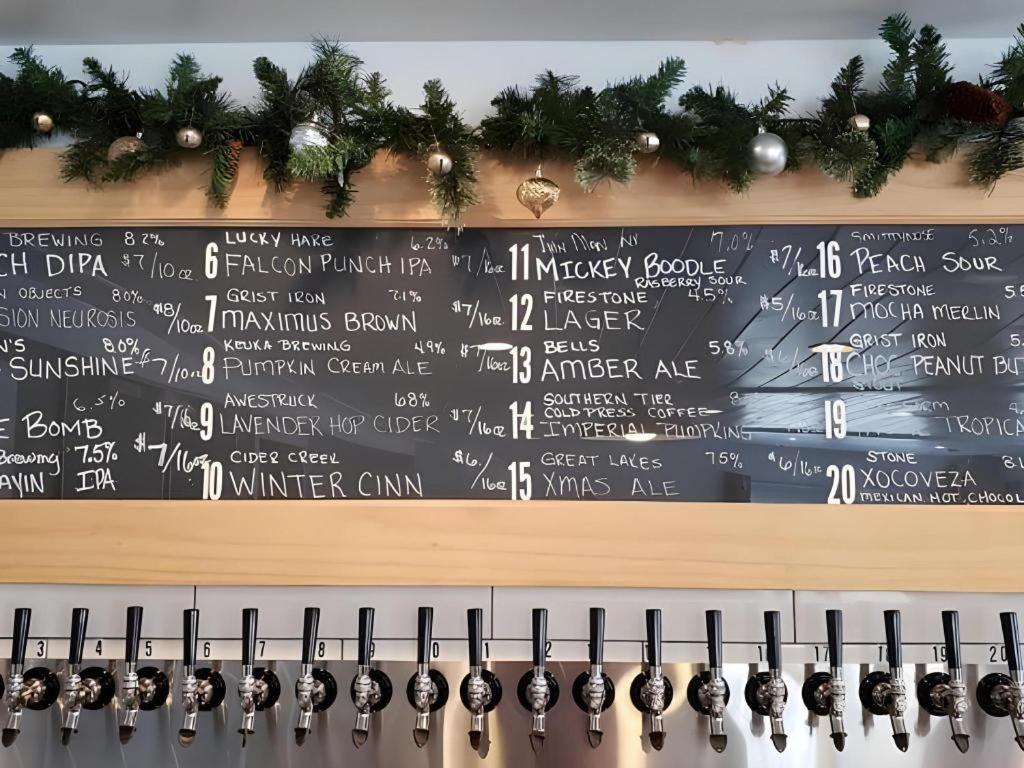 BREWING 8.2%
CH DIPA $7/10oz
N OBJECTS 8.0%
SION NEUROSIS $8/10oz
N'S 8.0%
SUNSHINE $7/10oz
6.5%
E BOMB $7/16oz
Brewing 7.5%
AVIN IPA $7/16oz
LUCKY HARE 6.2%
6 FALCON PUNCH IPA $7/16oz
GRIST IRON 7.1%
7 MAXIMUS BROWN $7/16oz
KEUKA BREWING 4.9%
8 PUMPKIN CREAM ALE $7/16oz
AWESTRUCK 6.8%
9 LAVENDER HOP CIDER $7/16oz
CIDER CREEK
10 WINTER CINN $6/16oz
THIN MAN NY 7.0%
11 MICKEY BOODLE $7/16oz
RASBERRY SOUR
FIRESTONE 4.5%
12 LAGER $5/16oz
BELLS 5.8%
13 AMBER ALE $6/16oz
SOUTHERN TIER 8
COLD PRESS COFFEE
14 IMPERIAL PUMPKING
GREAT LAKES 7.5%
15 XMAS ALE $6/16oz
SMITTYNOSE 5.2%
16 PEACH SOUR
FIRESTONE 5.
17 MOCHA MERLIN
GRIST IRON 5.
18 CHOC PEANUT BUT
STOUT
19 TROPICA
STONE 8.1
20 XOCOVEZA
MEXICAN HOT CHOCOL
3 4 5 6 7 8 9 0 1 2 1 17 18 19 20